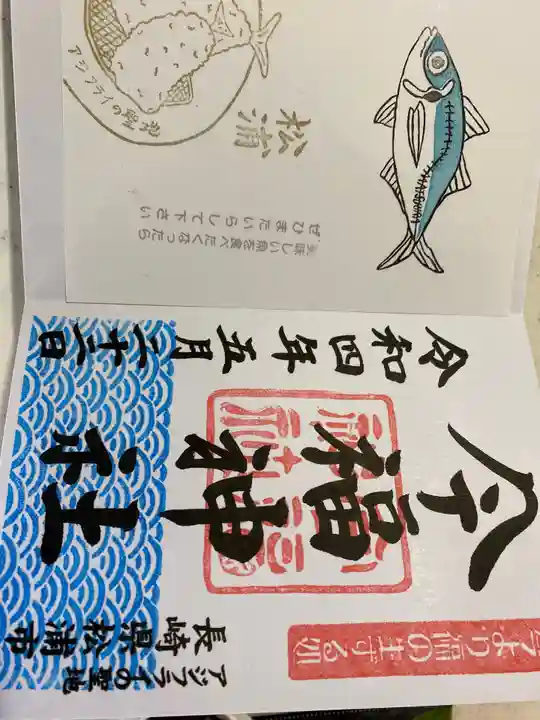 アジフライの聖地
松浦
MATSUURA
美味しい魚を食べたくなったら
ぜひまたいらして下さい
今より福の生ずる処
今福神社
令和四年五月二十二日
アジフライの聖地
長崎県松浦市